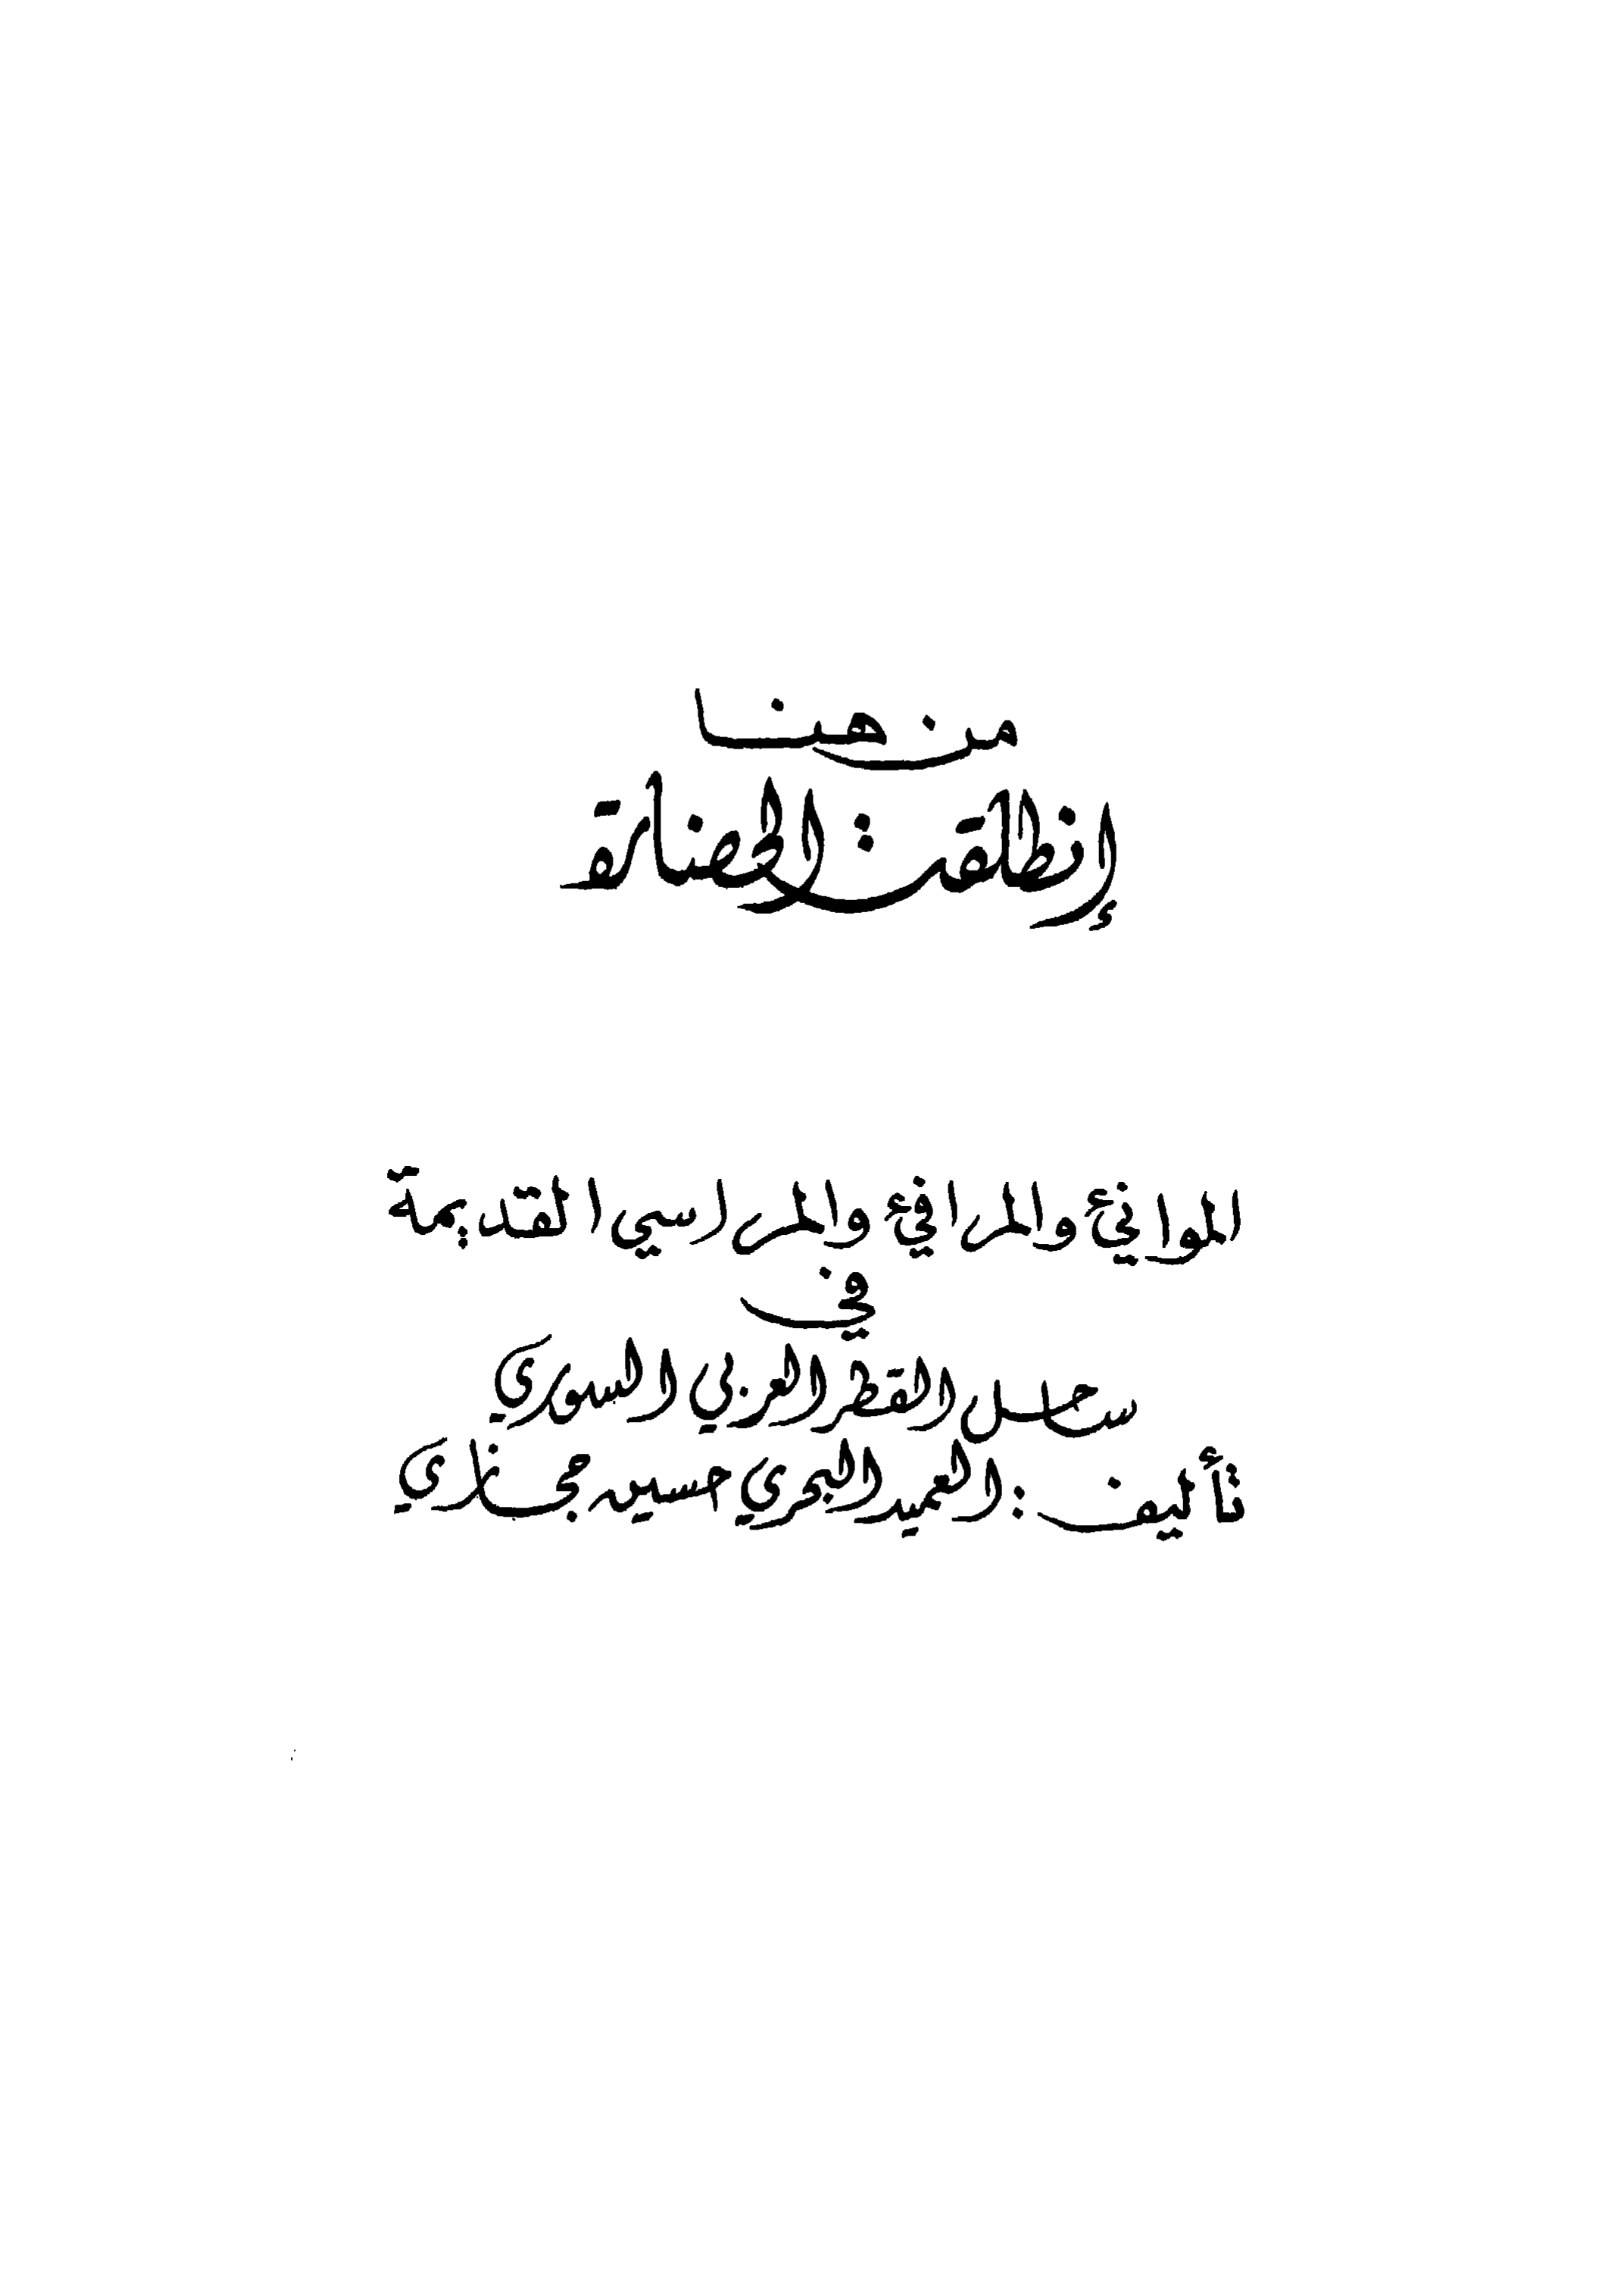 من هنا
إنطلقت الحضارة
الموانئ والمرافئ والمراسي القديمة
في
ساحل القطر العربي السوري
تأليف : العميد البحري حسين حجازي